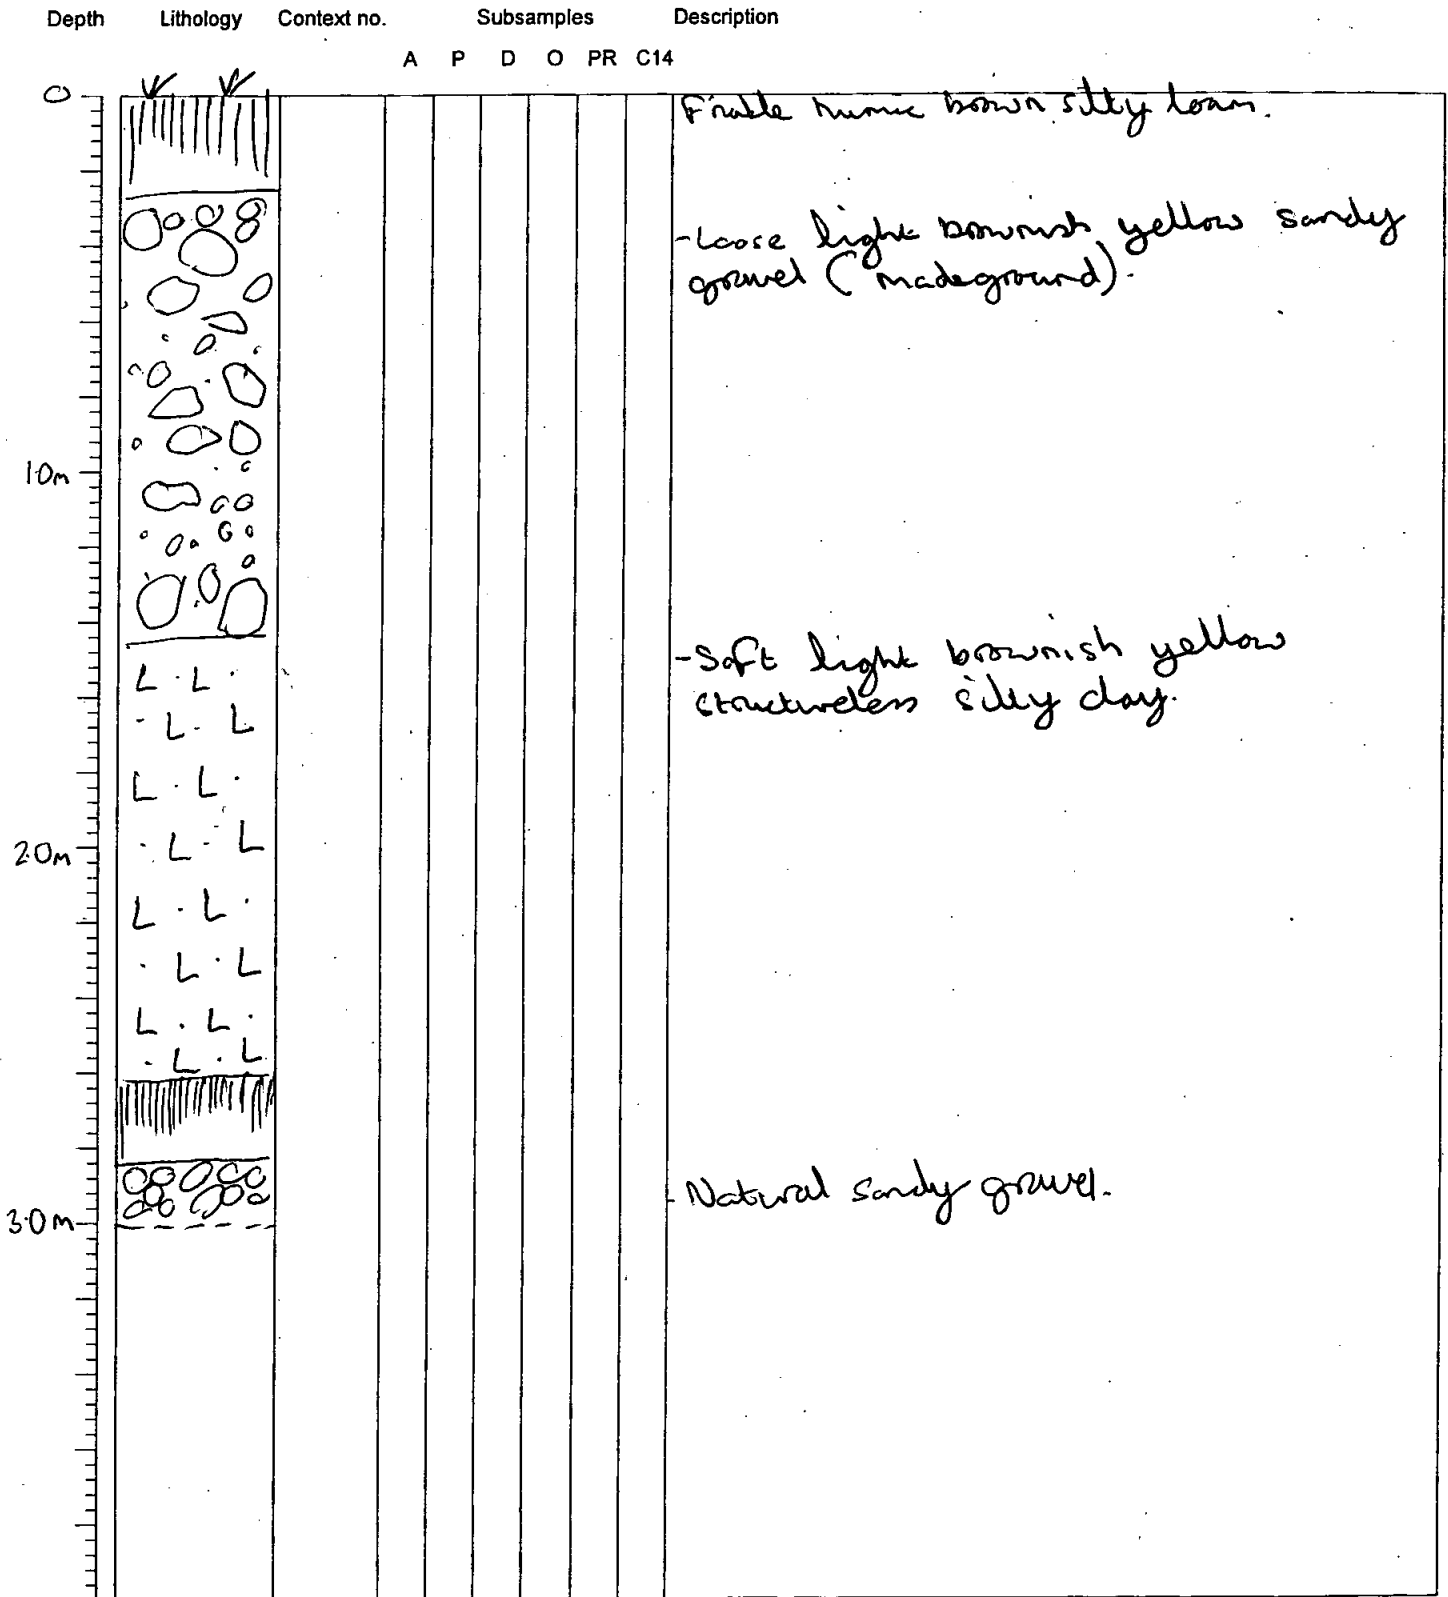 Depth Lithology Context no. Subsamples Description
A P D O PR C14
0
Friable humic brown silty loam.
-Loose light brownish yellow sandy
gravel (madeground).
1.0m
-Soft light brownish yellow
structureless silty clay.
2.0m
- Natural sandy gravel.
3.0m